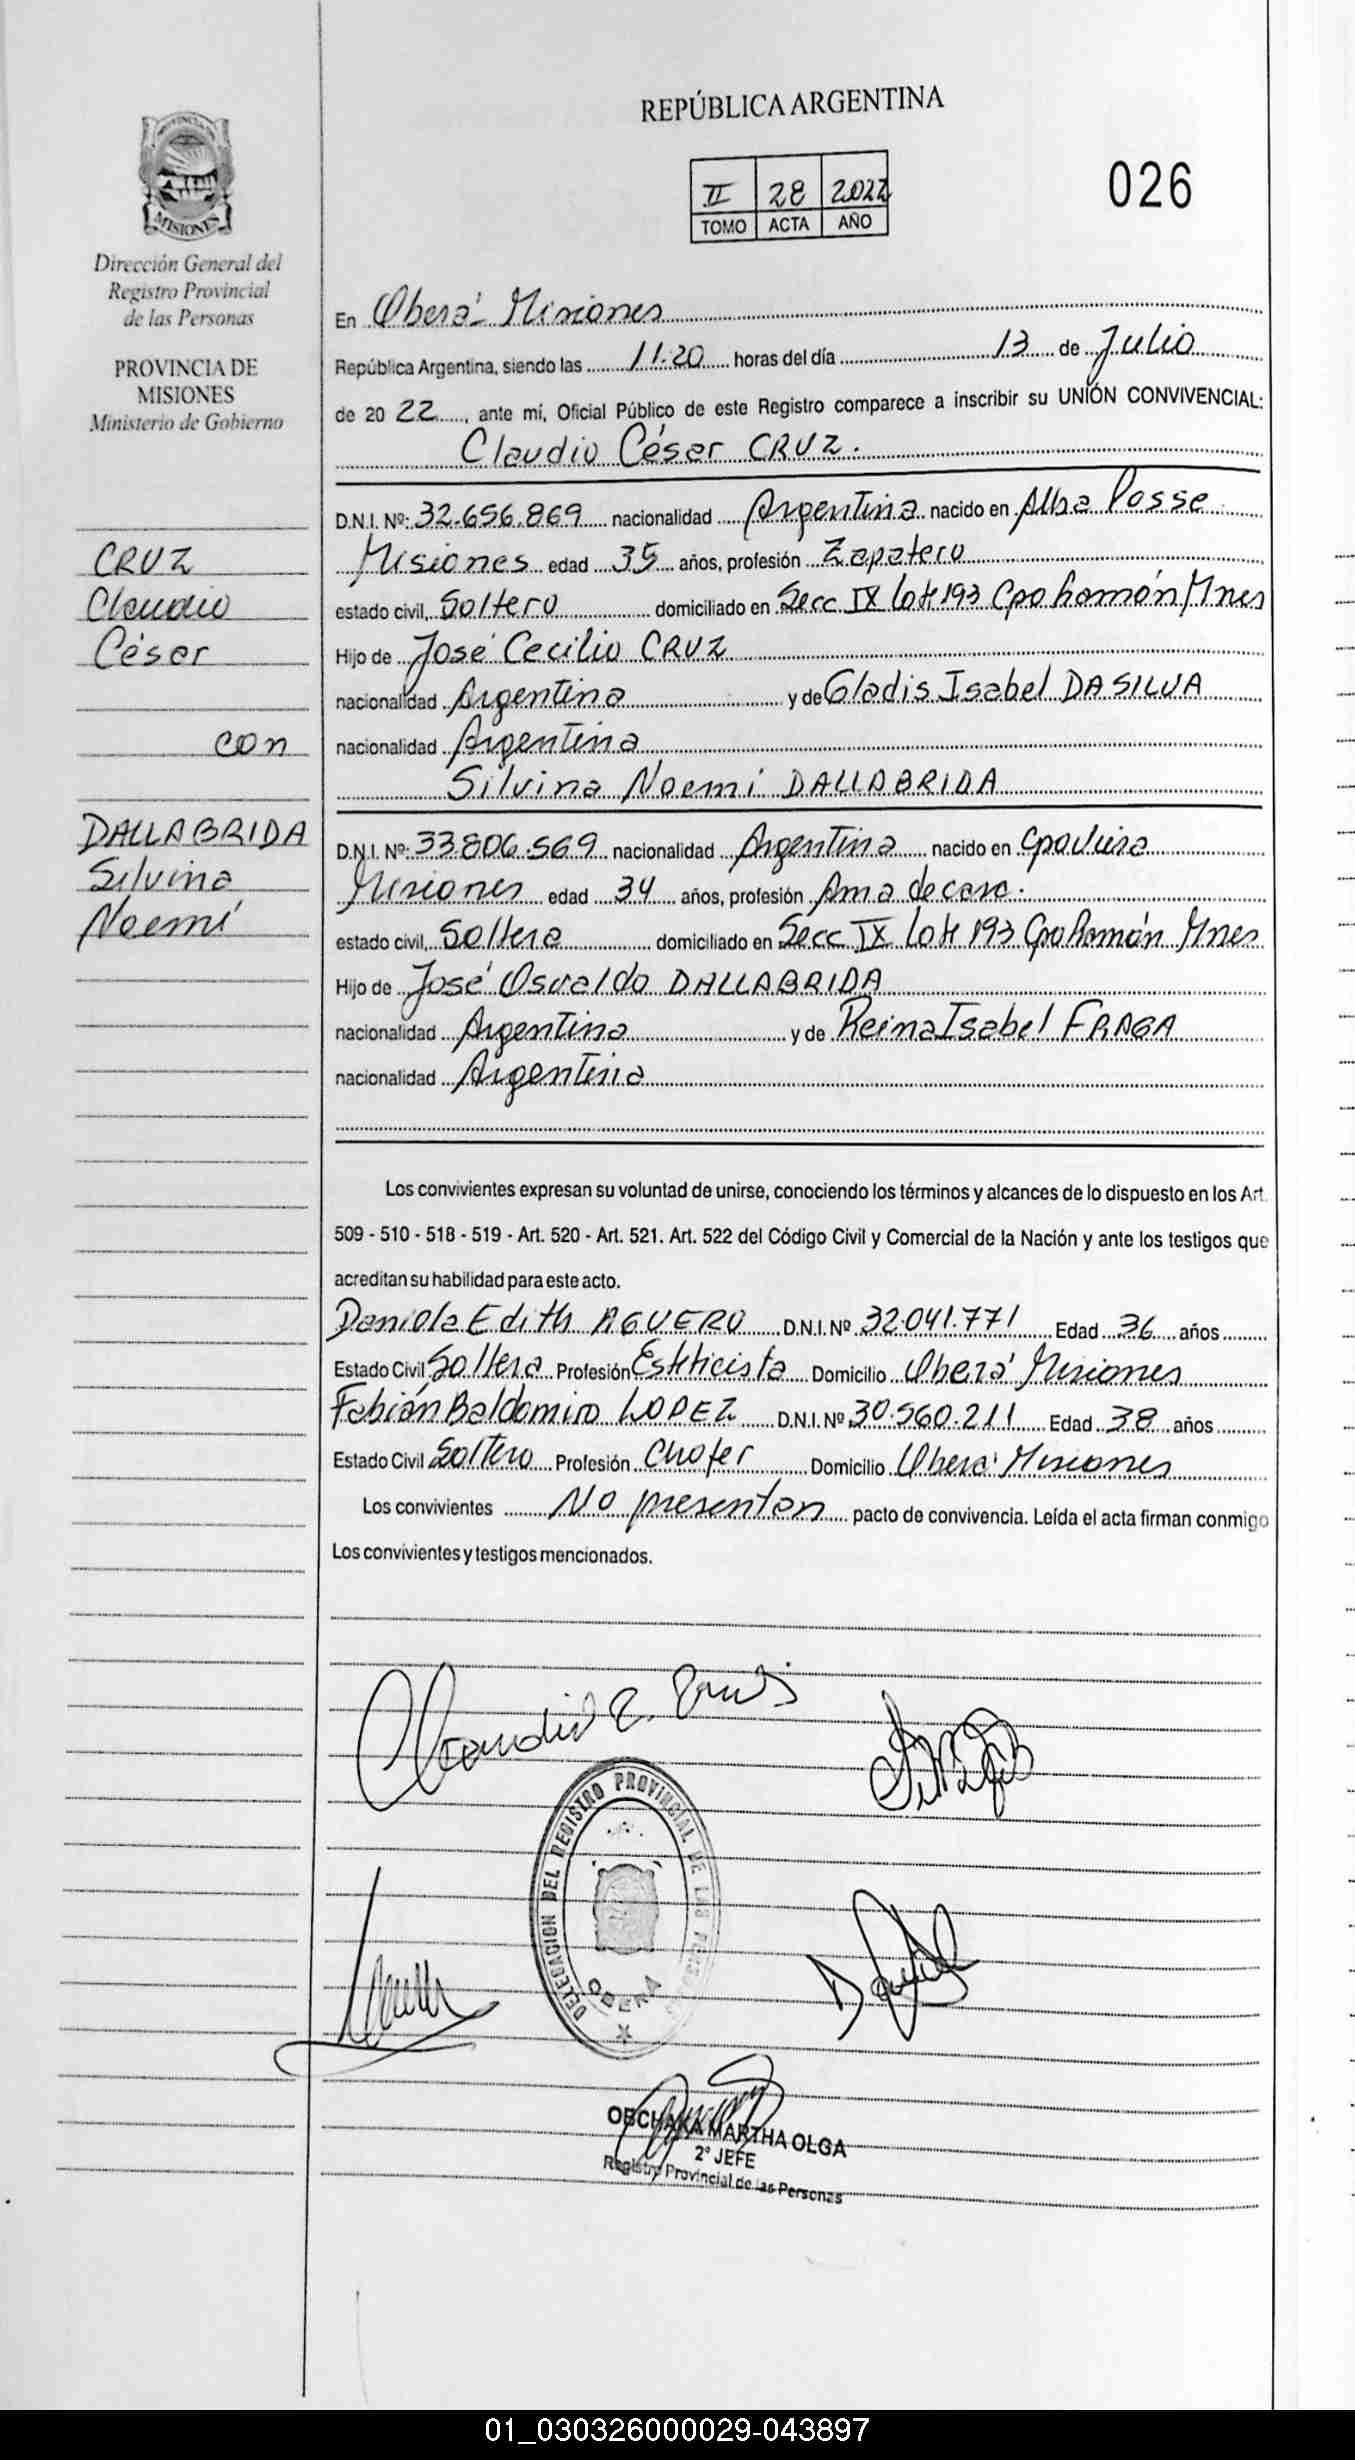 REPÚBLICA ARGENTINA
II 28 2022
TOMO ACTA AÑO
026
PROVINCIA DE
MISIONES
Dirección General del
Registro Provincial
de las Personas
PROVINCIA DE
MISIONES
Ministerio de Gobierno
CRUZ
Claudio
César
con
DALLABRIDA
Silvina
Noemí
En Oberá - Misiones
República Argentina, siendo las 11.20 horas del día 13 de Julio
de 20 22, ante mi, Oficial Público de este Registro comparece a inscribir su UNIÓN CONVIVENCIAL:
Claudio César CRUZ.
D.N.I. Nº: 32.656.869 nacionalidad Argentina nacido en Alba Posse
Misiones edad 35 años, profesión Zapatero
estado civil, Soltero domiciliado en Secc IX lote 193 Cpo Ramón Mnes
Hijo de José Cecilio CRUZ
nacionalidad Argentina y de Gladis Isabel DA SILVA
nacionalidad Argentina
Silvina Noemi DALLABRIDA
D.N.I. Nº: 33.806.569 nacionalidad Argentina nacido en Cpo Viera
Misiones edad 34 años, profesión Ama de casa.
estado civil, Soltera domiciliado en Secc IX Lote 193 Cpo Ramón Mnes
Hijo de José Osvaldo DALLABRIDA
nacionalidad Argentina y de Reina Isabel FRAGA
nacionalidad Argentina
Los convivientes expresan su voluntad de unirse, conociendo los términos y alcances de lo dispuesto en los Art.
509 - 510 - 518 - 519 - Art. 520 - Art. 521. Art. 522 del Código Civil y Comercial de la Nación y ante los testigos que
acreditan su habilidad para este acto.
Daniela Edith AGUERO D.N.I. Nº 32.041.771 Edad 36 años
Estado Civil Soltera Profesión Esteticista Domicilio Oberá Misiones
Fabián Baldomiro LOPEZ D.N.I. Nº 30.560.211 Edad 38 años
Estado Civil Soltero Profesión Chofer Domicilio Oberá Misiones
Los convivientes No presentan pacto de convivencia. Leída el acta firman conmigo
Los convivientes y testigos mencionados.
DELEGACION DEL REGISTRO PROVINCIAL DE LAS
OBERA
OBCHAKA MARTHA OLGA
2° JEFE
Registro Provincial de las Personas
01_030326000029-043897